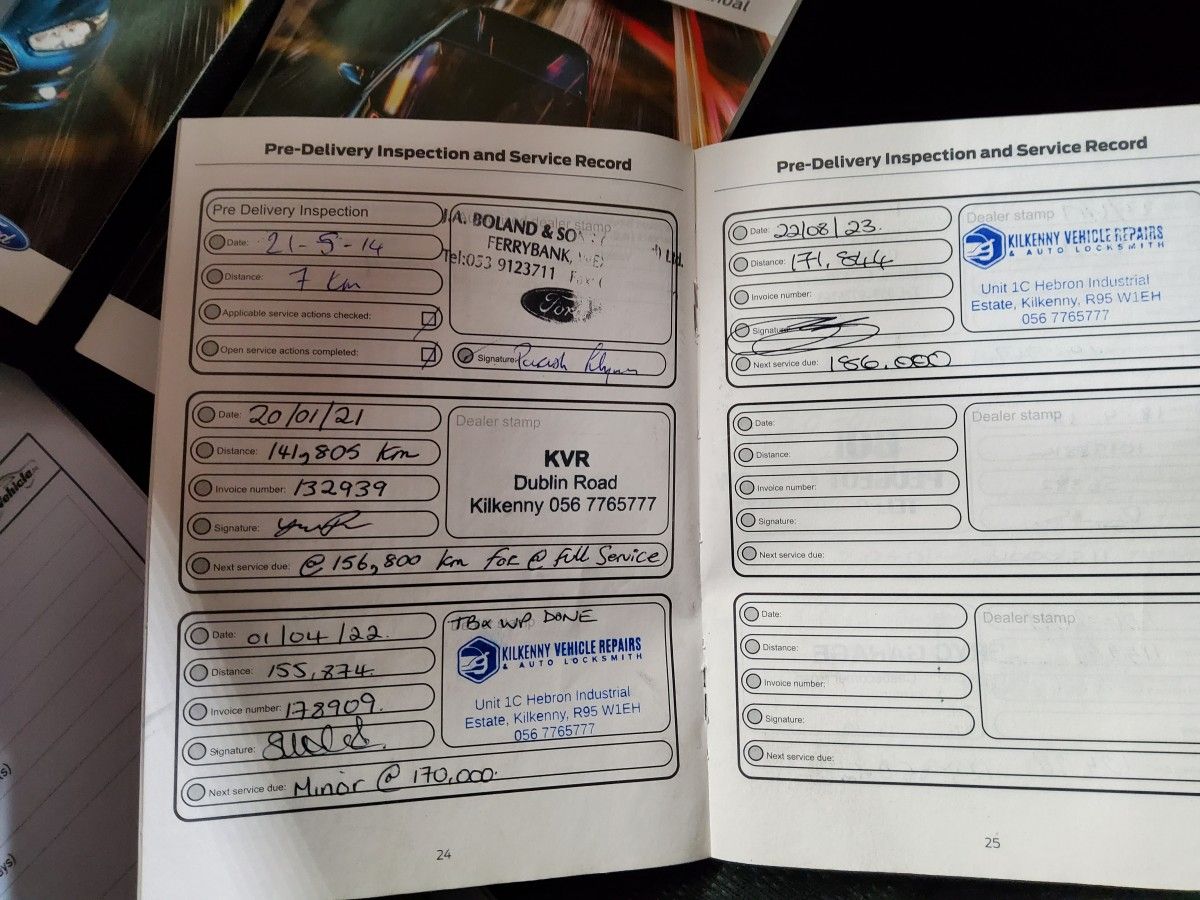 Pre-Delivery Inspection and Service Record
Pre Delivery Inspection
Date: 21-5-14
Distance: 7 Km
Applicable service actions checked:
Open service actions completed:
J.A. BOLAND & SO
FERRYBANK,
Tel:053 9123711
Ford
Signature:
Date: 20/01/21
Distance: 141,805 Km
Invoice number: 132939
Signature:
Next service due: @ 156,800 km for @ Full Service
Dealer stamp
KVR
Dublin Road
Kilkenny 056 7765777
Date: 01/04/22
Distance: 155,874
Invoice number: 178909.
Signature:
Next service due: Minor @ 170,000.
TB & WP DONE
KILKENNY VEHICLE REPAIRS
& AUTO LOCKSMITH
Unit 1C Hebron Industrial
Estate, Kilkenny, R95 W1EH
056 7765777
24
Pre-Delivery Inspection and Service Record
Date: 22/08/23.
Distance: 171,844
Invoice number:
Signature:
Next service due: 186,000
Dealer stamp
KILKENNY VEHICLE REPAIRS
& AUTO LOCKSMITH
Unit 1C Hebron Industrial
Estate, Kilkenny, R95 W1EH
056 7765777
Date:
Distance:
Invoice number:
Signature:
Next service due:
Dealer stamp
Date:
Distance:
Invoice number:
Signature:
Next service due:
Dealer stamp
25